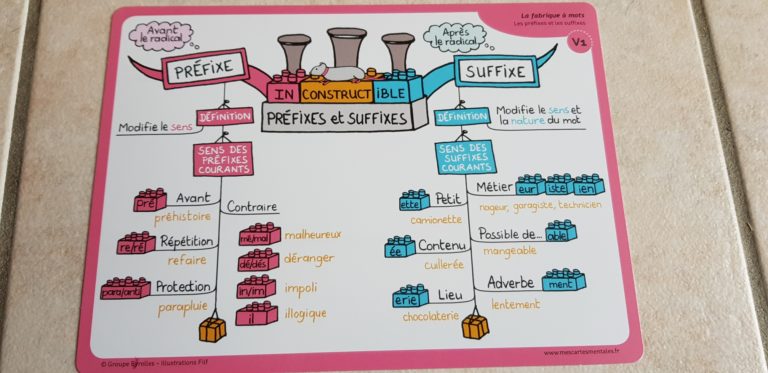 La fabrique à mots
Les préfixes et les suffixes
V1
Avant
le radical
Après
le radical
PRÉFIXE
SUFFIXE
IN CONSTRUCT iBLE
PRÉFIXES et SUFFIXES
DÉFINITION
Modifie le sens
DÉFINITION
Modifie le sens et
la nature du mot
SENS DES
PRÉFIXES
COURANTS
pré Avant
préhistoire
re/ré Répétition
refaire
para/anti Protection
parapluie
Contraire
mé/mal malheureux
dé/dés déranger
in/im impoli
il illogique
SENS DES
SUFFIXES
COURANTS
ette Petit
camionette
ée Contenu
cuillerée
erie Lieu
chocolaterie
Métier eur iste ien
nageur, garagiste, technicien
Possible de... able
mangeable
Adverbe ment
lentement
© Groupe Eyrolles – Illustrations Filf
www.mescartesmentales.fr